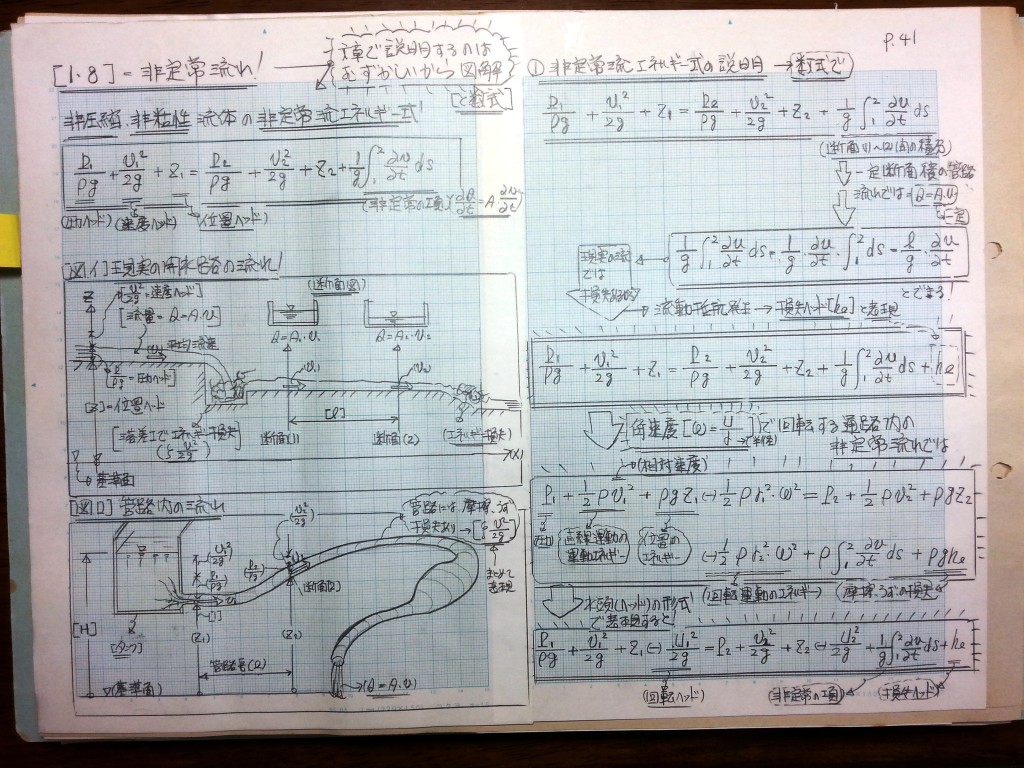 P.41
[1・8] = 非定常流れ!
文章で説明するのは
むずかしいから 図解
[と数式]
非圧縮、非粘性 流体の非定常流エネルギー式!
P₁/ρg + v₁²/2g + Z₁ = P₂/ρg + v₂²/2g + Z₂ + 1/g ∫₁² ∂v/∂t ds
(圧力ヘッド) (速度ヘッド) (位置ヘッド)
(非定常の項)
[図イ] 現実の用水路の流れ!
(断面図)
Z
[v²/2g = 速度ヘッド]
[流量 = Q = A・v]
Q = A₁・v₁
Q = A₂・v₂
平均流速
[P/ρg = 圧力ヘッド]
[Z] = 位置ヘッド
[落差工でエネルギー損失]
(ζ v²/2g)
[ℓ]
断面(1)
断面(2)
(エネルギー損失)
(X)
基準面
[図ロ] 管路内の流れ
管路には、摩擦、うず
損失あり → [ζ v²/2g]
まとめて
表現
(v₂²/2g)
v₁²/2g
P₁/ρg
P₂/ρg
断面[2]
[1]
[H]
[タンク]
(Z₁)
(Z₂)
管路長(ℓ)
(基準面)
(Q = A.v)
① 非定常流エネルギー式の説明 → 数式で
P₁/ρg + v₁²/2g + Z₁ = P₂/ρg + v₂²/2g + Z₂ + 1/g ∫₁² ∂v/∂t ds
(断面(1)~(2)間の積分)
一定断面積の管路
流れでは = Q = A.v
一定
1/g ∫₁² ∂v/∂t ds = 1/g・∂v/∂t・∫₁² ds = ℓ/g・∂v/∂t
とできる!
現実の流れ
では
損失あるから
流動抵抗発生 → 損失ヘッド[he] と表現
P₁/ρg + v₁²/2g + Z₁ = P₂/ρg + v₂²/2g + Z₂ + 1/g ∫₁² ∂v/∂t ds + he
角速度 [ω = u/r] で回転する通路内の
(半径)
非定常流れでは
(相対速度)
P₁ + 1/2 ρv₁² + ρgZ₁ (-) 1/2 ρr₁²・ω² = P₂ + 1/2 ρv₂² + ρgZ₂
圧力
直線運動の
運動エネルギー
位置の
エネルギー
(-) 1/2 ρr₂²・ω² + ρ∫₁² ∂v/∂t ds + ρghe
回転運動のエネルギー
(摩擦、うずの損失)
水頭(ヘッド)の形式
で表現すると!
P₁/ρg + v₁²/2g + Z₁ (-) U₁²/2g = P₂ + v₂²/2g + Z₂ (-) U₂²/2g + 1/g ∫₁² ∂v/∂t ds + he
(回転ヘッド)
(非定常の項)
(損失ヘッド)